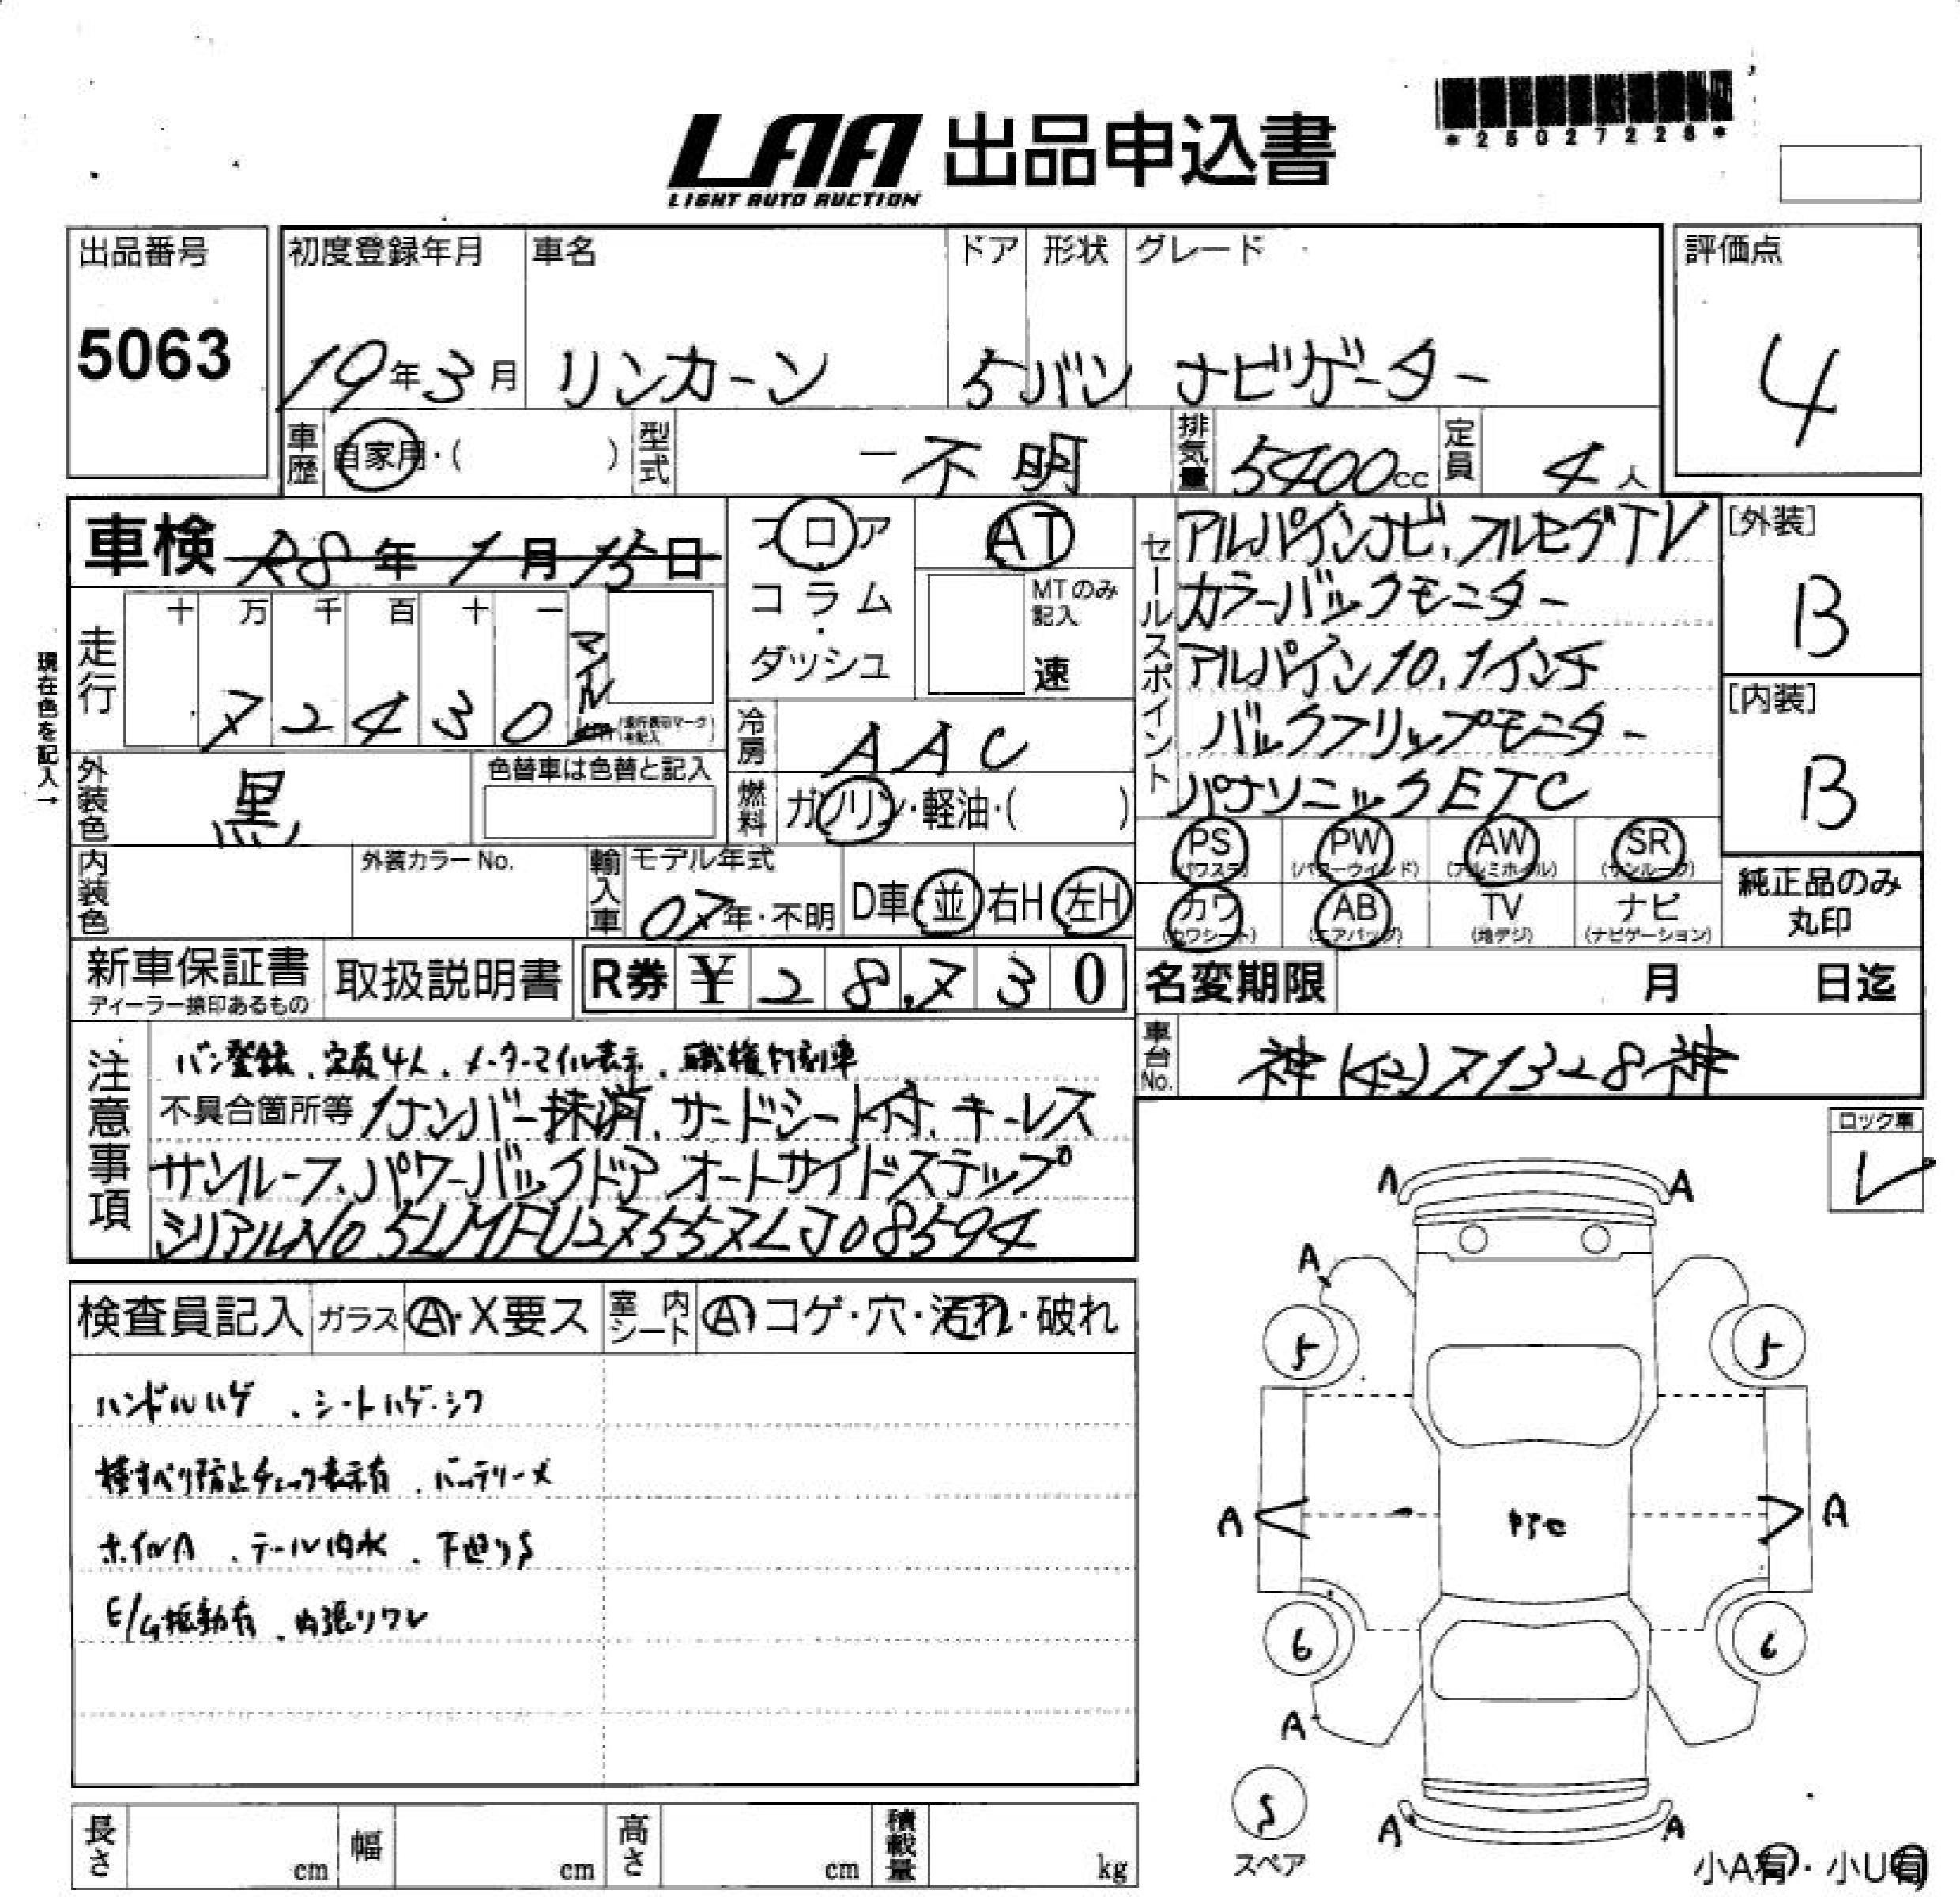 *25027228*
LAA 出品申込書
LIGHT AUTO AUCTION
出品番号
5063
初度登録年月
19年3月
車名
リンカーン
ドア
5
形状
バン
グレード
ナビゲーター
評価点
4
車歴
自家用・( )
型式
ー不明
排気量
5400cc
定員
4人
車検 R8年1月15日
フロア
コラム
・
ダッシュ
AT
MTのみ
記入
速
セールスポイント
アルパインナビ、フルセグTV
カラーバックモニター
アルパイン10.1インチ
バックフリップモニター
パナソニックETC
[外装]
B
[内装]
B
現在色を記入→
走行
十 万 千 百 十 一
7 2 4 3 0
マイル
冷房
AAC
外装色
黒
色替車は色替と記入
燃料
ガソリン・軽油・( )
PS
(パワステ)
PW
(パワーウインド)
AW
(アルミホイル)
SR
(サンルーフ)
カワ
(カワシート)
AB
(エアバッグ)
TV
(地デジ)
ナビ
(ナビゲーション)
純正品のみ
丸印
内装色
外装カラーNo.
輸入車
モデル年式
07年・不明
D車・並
右H・左H
新車保証書
ディーラー捺印あるもの
取扱説明書
R券 ¥ 28,730
名変期限 月 日迄
車台No.
神(42)71328神
注意事項
バン登録、定員4人、メーターマイル表示、職権打刻車
不具合箇所等 1ナンバー抹消、サードシート付、キーレス
サンルーフ、パワーバックドア、オートサイドステップ
シリアルNo 5LMFU27557LJ08594
ロック車
レ
検査員記入 ガラス A・X要ス 室内シート A コゲ・穴・汚れ・破れ
ハンドルハゲ、シートハゲ・シワ
横すべり防止チェック表示有、バッテリーメ
ホイルA、テール内水、下廻りS
E/G振動有、内張りワレ
A A
A
5 5
A A
6 6
A
A A
S
スペア
小A有・小U有
長さ cm 幅 cm 高さ cm 積載量 kg